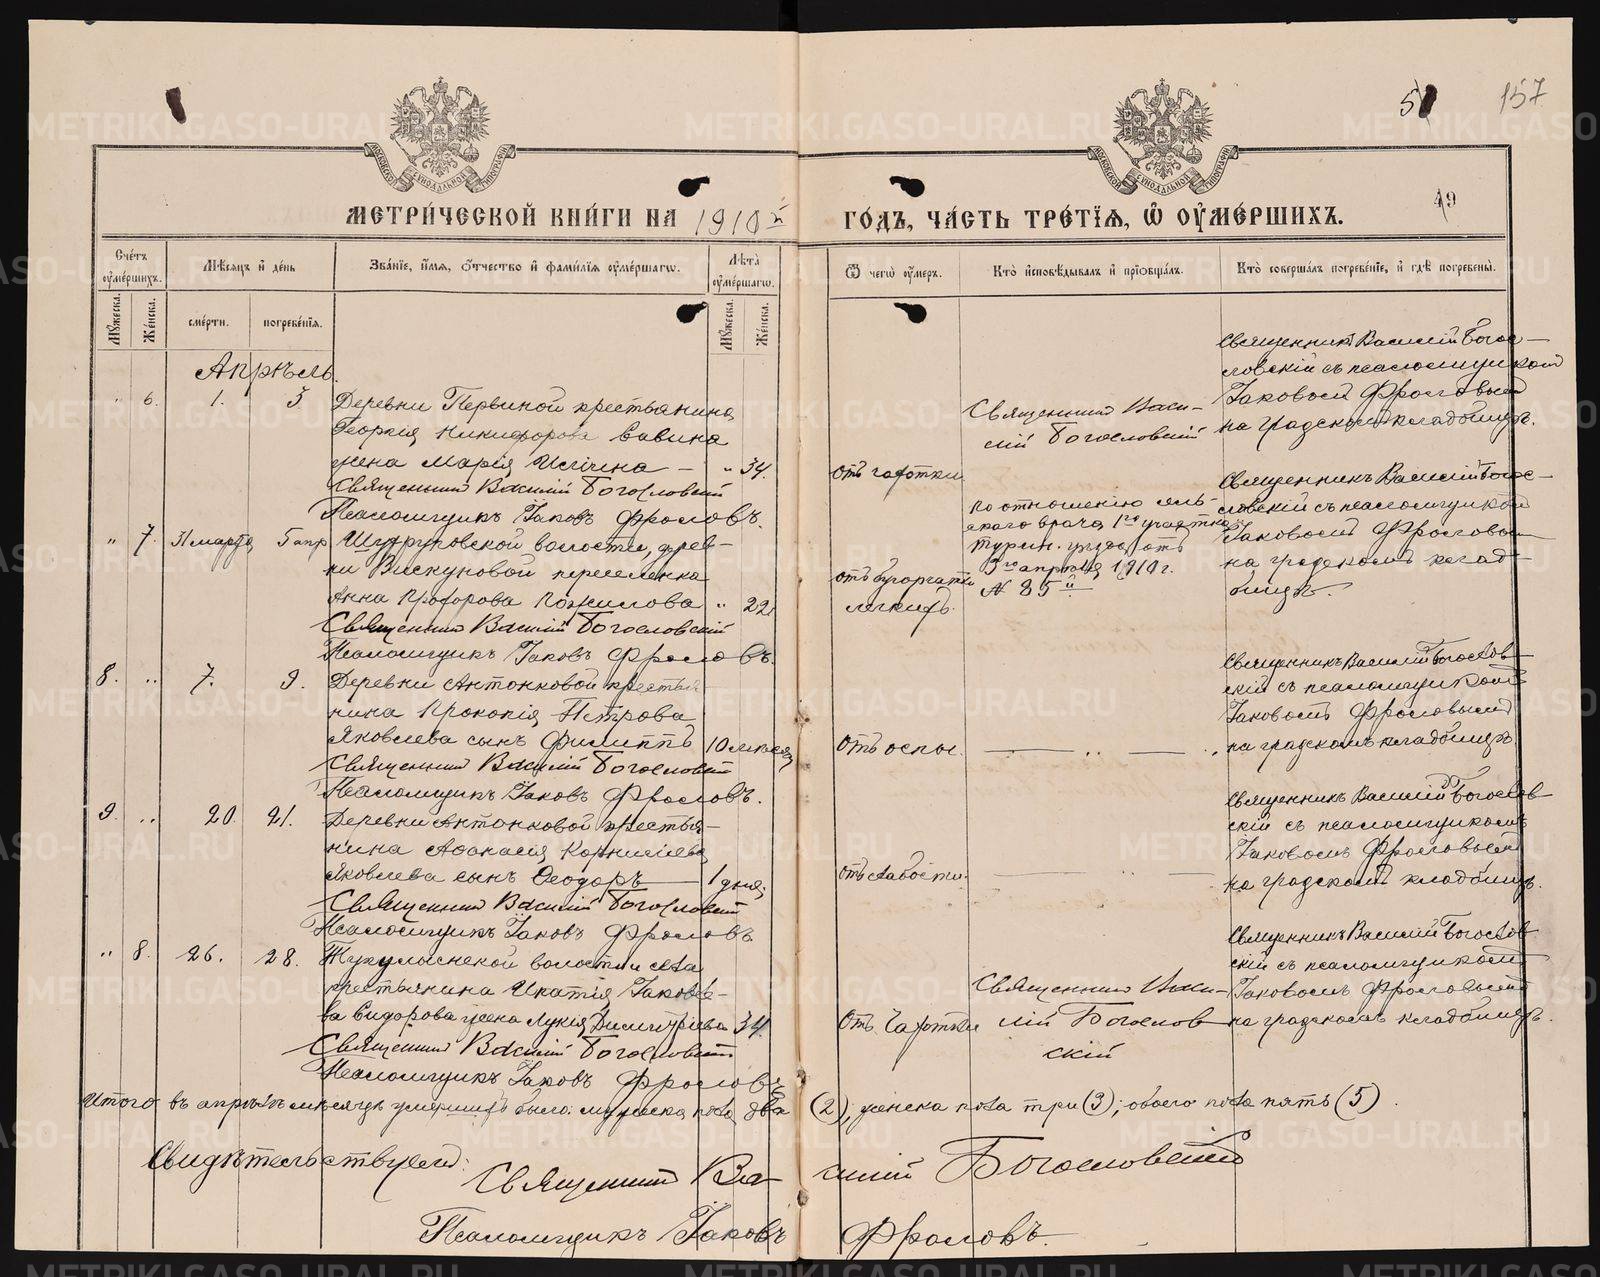 51
157
49
МЕТРИЧЕСКОЙ КНИГИ НА 1910й ГОДЪ, ЧАСТЬ ТРЕТІЯ, Ѿ ОУМЕРШИХЪ.
Счетъ оумершихъ.
Мѣсяцъ и день
Званіе, имя, отчество и фамилія оумершаго.
Лѣта оумершаго.
Ѿ чего оумеръ.
Кто исповѣдывалъ и пріобщалъ.
Кто совершалъ погребеніе, и гдѣ погребены.
Мужеска.
Женска.
смерти.
погребенія.
Мужеска.
Женска.
Апрѣль.
" 6. 1. 3
Деревни Первиной крестьянина
Георгія Никифорова Савина
жена Марія — " 34.
Священникъ Василій Богословскій
Псаломщикъ Іаковъ Фроловъ.
отъ чахотки
Священникъ Васи-
лій Богословскій
Священникъ Василій Богос-
ловскій съ псаломщикомъ
Іаковомъ Фроловымъ
на градскомъ кладбищѣ.
" 7. 31 марта 5 апр
волости, дерев-
ни переселенка
Анна Прохорова " 22
Священникъ Василій Богословскій
Псаломщикъ Іаковъ Фроловъ.
отъ бугорчатки
легкихъ.
по отношенію сель-
скаго врача 1го участка
Турин. уѣзда отъ
3го апрѣля 1910 г.
№ 85й
Священникъ Василій Богос-
ловскій съ псаломщикомъ
Іаковомъ Фроловымъ
на градскомъ клад-
бищѣ.
8. " 7. 9.
Деревни Антонковой крестья-
нина Прокопія Петрова
Яковлева сынъ Филиппъ 10 месяц
Священникъ Василій Богословскій
Псаломщикъ Іаковъ Фроловъ.
отъ оспы. — " — "
Священникъ Василій Богослов-
скій съ псаломщикомъ
Іаковомъ Фроловымъ
на градскомъ кладбищѣ.
9. " 20. 21.
Деревни Антонковой крестья-
нина Аѳанасія Корниліева
Яковлева сынъ Ѳеодоръ — 1 дня
Священникъ Василій Богословскій
Псаломщикъ Іаковъ Фроловъ
отъ слабости. — " —
Священникъ Василій Богослов-
скій съ псаломщикомъ
Іаковомъ Фроловымъ
на градскомъ кладбищѣ.
" 8. 26. 28.
волости села
крестьянина Ипатія Іаковле-
ва Сидорова жена Лукія Димитріева 34.
Священникъ Василій Богословскій
Псаломщикъ Іаковъ Фроловъ
отъ чахотки
Священникъ Васи-
лій Богослов
скій
Священникъ Василій Богослов
скій съ псаломщикомъ
Іаковомъ Фроловымъ
на градскомъ кладбищѣ.
Итого въ апрѣлѣ мѣсяцѣ умершихъ было: мужеска пола два (2), женска пола три (3); обоего пола пять (5).
Свидѣтельствуемъ:
Священникъ Василій Богословскій
Псаломщикъ Іаковъ Фроловъ.
METRIKI.GASO-URAL.RU